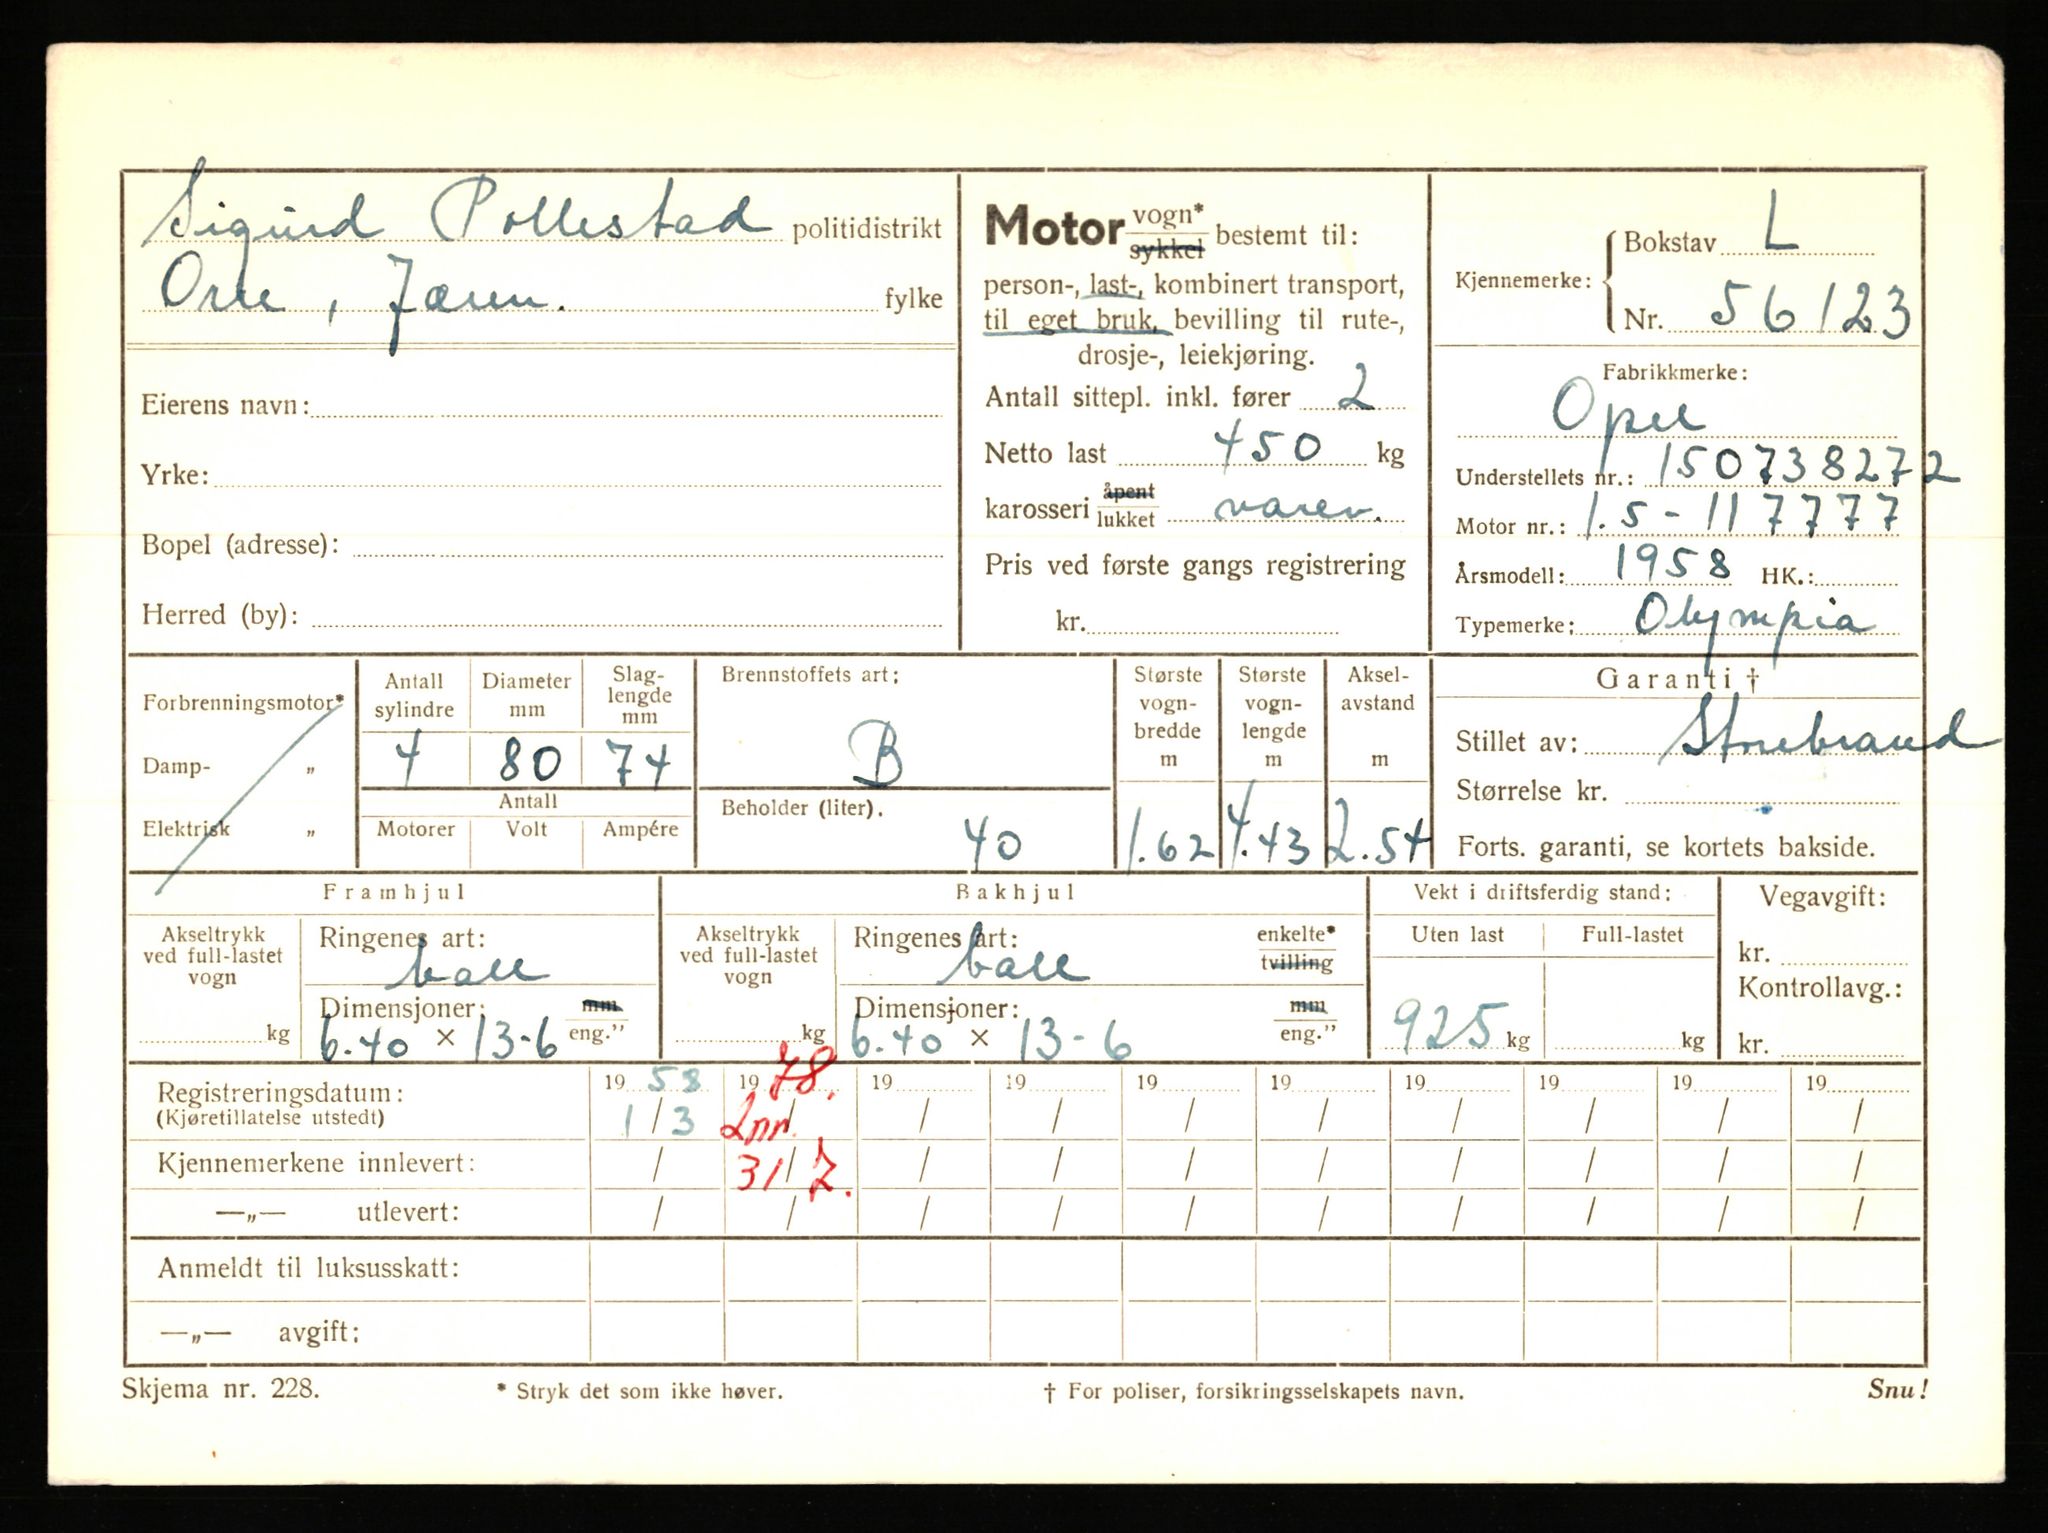 Sigurd Pollestad politidistrikt
Orre, Jæren. fylke
Eierens navn:
Yrke:
Bopel (adresse):
Herred (by):
Motor vogn* sykkel bestemt til:
person-, last-, kombinert transport,
til eget bruk, bevilling til rute-,
drosje-, leiekjøring.
Antall sittepl. inkl. fører 2
Netto last 450 kg
karosseri åpent lukket varev.
Pris ved første gangs registrering
kr.
Kjennemerke: Bokstav L
Nr. 56123
Fabrikkmerke:
Opel
Understellets nr.: 150738272
Motor nr.: 1.5-117777
Årsmodell: 1958 HK.:
Typemerke: Olympia
Forbrenningsmotor*
Damp- „
Elektrisk „
Antall sylindre Diameter mm Slag-lengde mm
4 80 74
Antall
Motorer Volt Ampére
Brennstoffets art:
B
Beholder (liter).
40
Største vogn-bredde m
1.62
Største vogn-lengde m
4.43
Aksel-avstand m
2.54
Garanti †
Stillet av: Storebrand
Størrelse kr.
Forts. garanti, se kortets bakside.
Framhjul
Akseltrykk ved full-lastet vogn
kg
Ringenes art:
ball
Dimensjoner: mm
6.40 × 13-6 eng."
Bakhjul
Akseltrykk ved full-lastet vogn
kg
Ringenes art: enkelte*
ball tvilling
Dimensjoner: mm
6.40 × 13-6 eng."
Vekt i driftsferdig stand:
Uten last Full-lastet
925 kg kg
Vegavgift:
kr.
Kontrollavg.:
kr.
Registreringsdatum: 19 58 19 78. 19 19 19 19 19 19 19 19
(Kjøretillatelse utstedt) 1/3 Inn. / / / / / / / / /
Kjennemerkene innlevert: / 31/7. / / / / / / / /
—„— utlevert: / / / / / / / / / /
Anmeldt til luksusskatt:
—„— avgift:
Skjema nr. 228. * Stryk det som ikke høver. † For poliser, forsikringsselskapets navn. Snu!